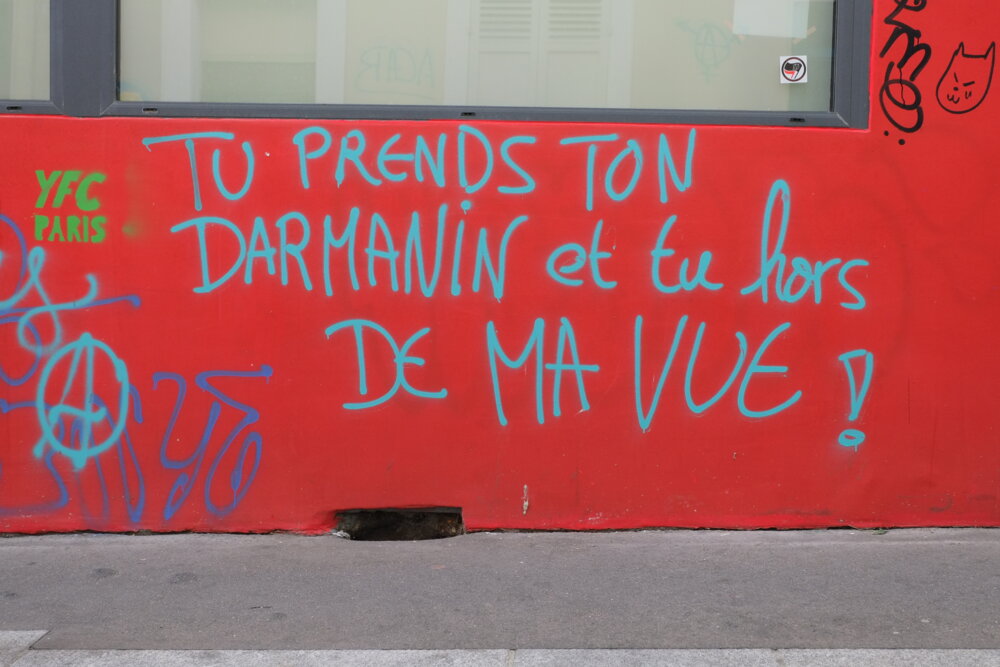 TU PRENDS TON
DARMANIN et tu hors
DE MA VUE !
YFC
PARIS